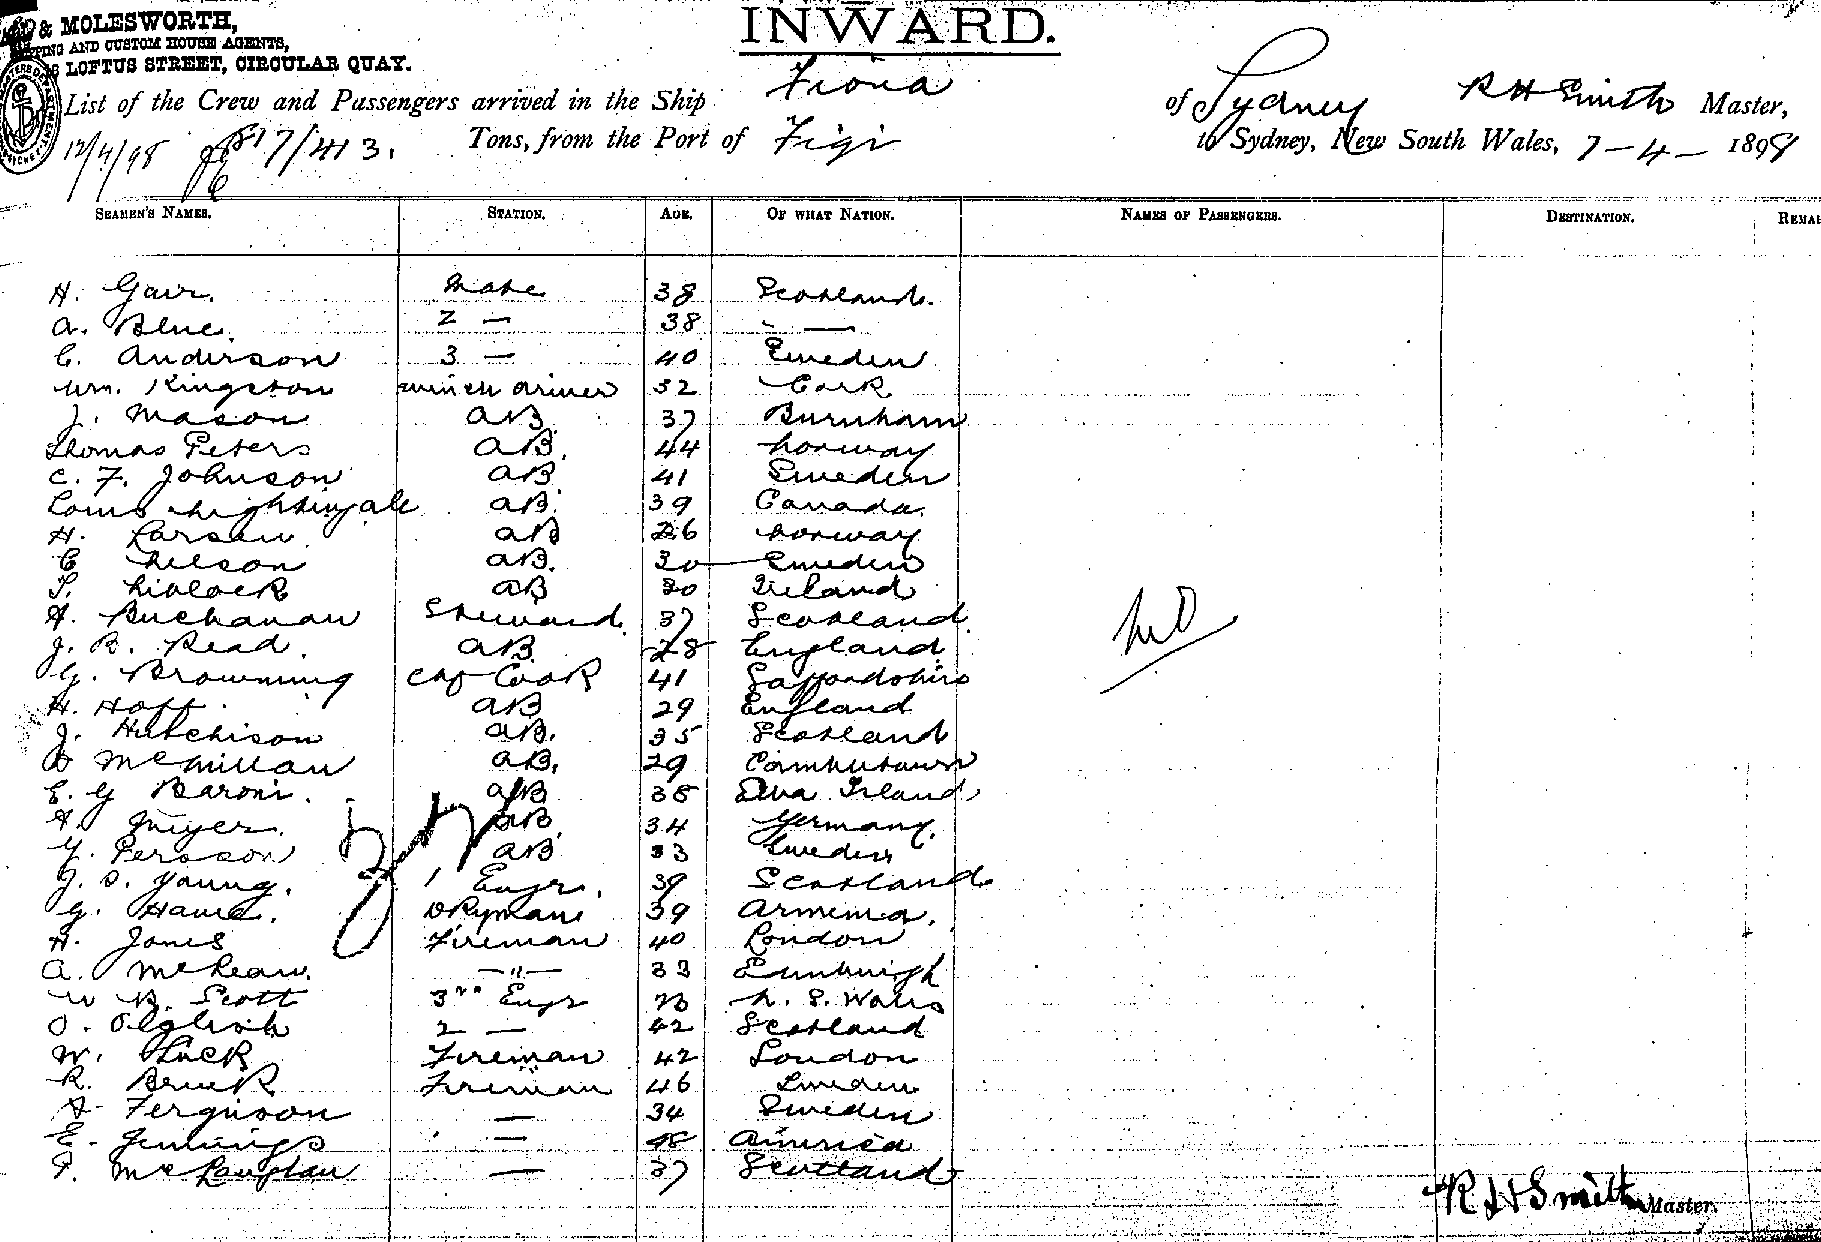 & MOLESWORTH,
PPING AND CUSTOM HOUSE AGENTS,
LOFTUS STREET, CIRCULAR QUAY.
INWARD.
List of the Crew and Passengers arrived in the Ship Fiona of Sydney R H Smith Master,
Tons, from the Port of Figi to Sydney, New South Wales, 7-4-1898
12/4/98 817/413.
SEAMEN'S NAMES. STATION. AGE. OF WHAT NATION. NAMES OF PASSENGERS. DESTINATION. REMA
H. Gair. Mate 38 Scotland.
A. Blue. 2 — 38 — —
C. Anderson 3 — 40 Sweden
Wm. Kingston winch driver 32 Cork
J. Mason AB. 37 Burnham
Thomas Peters AB. 44 Norway
C. F. Johnson AB 41 Sweden
Louis Nightingale AB. 39 Canada.
H. Larsen AB 26 Norway
C Nelson AB. 30 Sweden
AB 30 Ireland
A. Buchanan Steward. 37 Scotland.
J. B. Read. AB. 28 England.
G. Browning Cook 41
H. Hoff. AB 29 England
J. Hutchison AB. 35 Scotland
D McMillan AB. 29
E. G Baroni. AB 38 Island
A. AB 34 Germany.
G. Persson AB 33 Sweden
J. S. Young. 1 Engr. 39 Scotland
G. 39 Armenia.
H. Jones Fireman 40 London
A. McLean. —"— 33
W B. Scott 3rd Engr 23 N. S. Wales
2 — 42 Scotland
W. Fireman 42 London
R. Fireman 46 Sweden
A. Ferguson — 34 Sweden
E. Jennings — 48 America
— 37 Scotland
Nil
R H Smith Master.